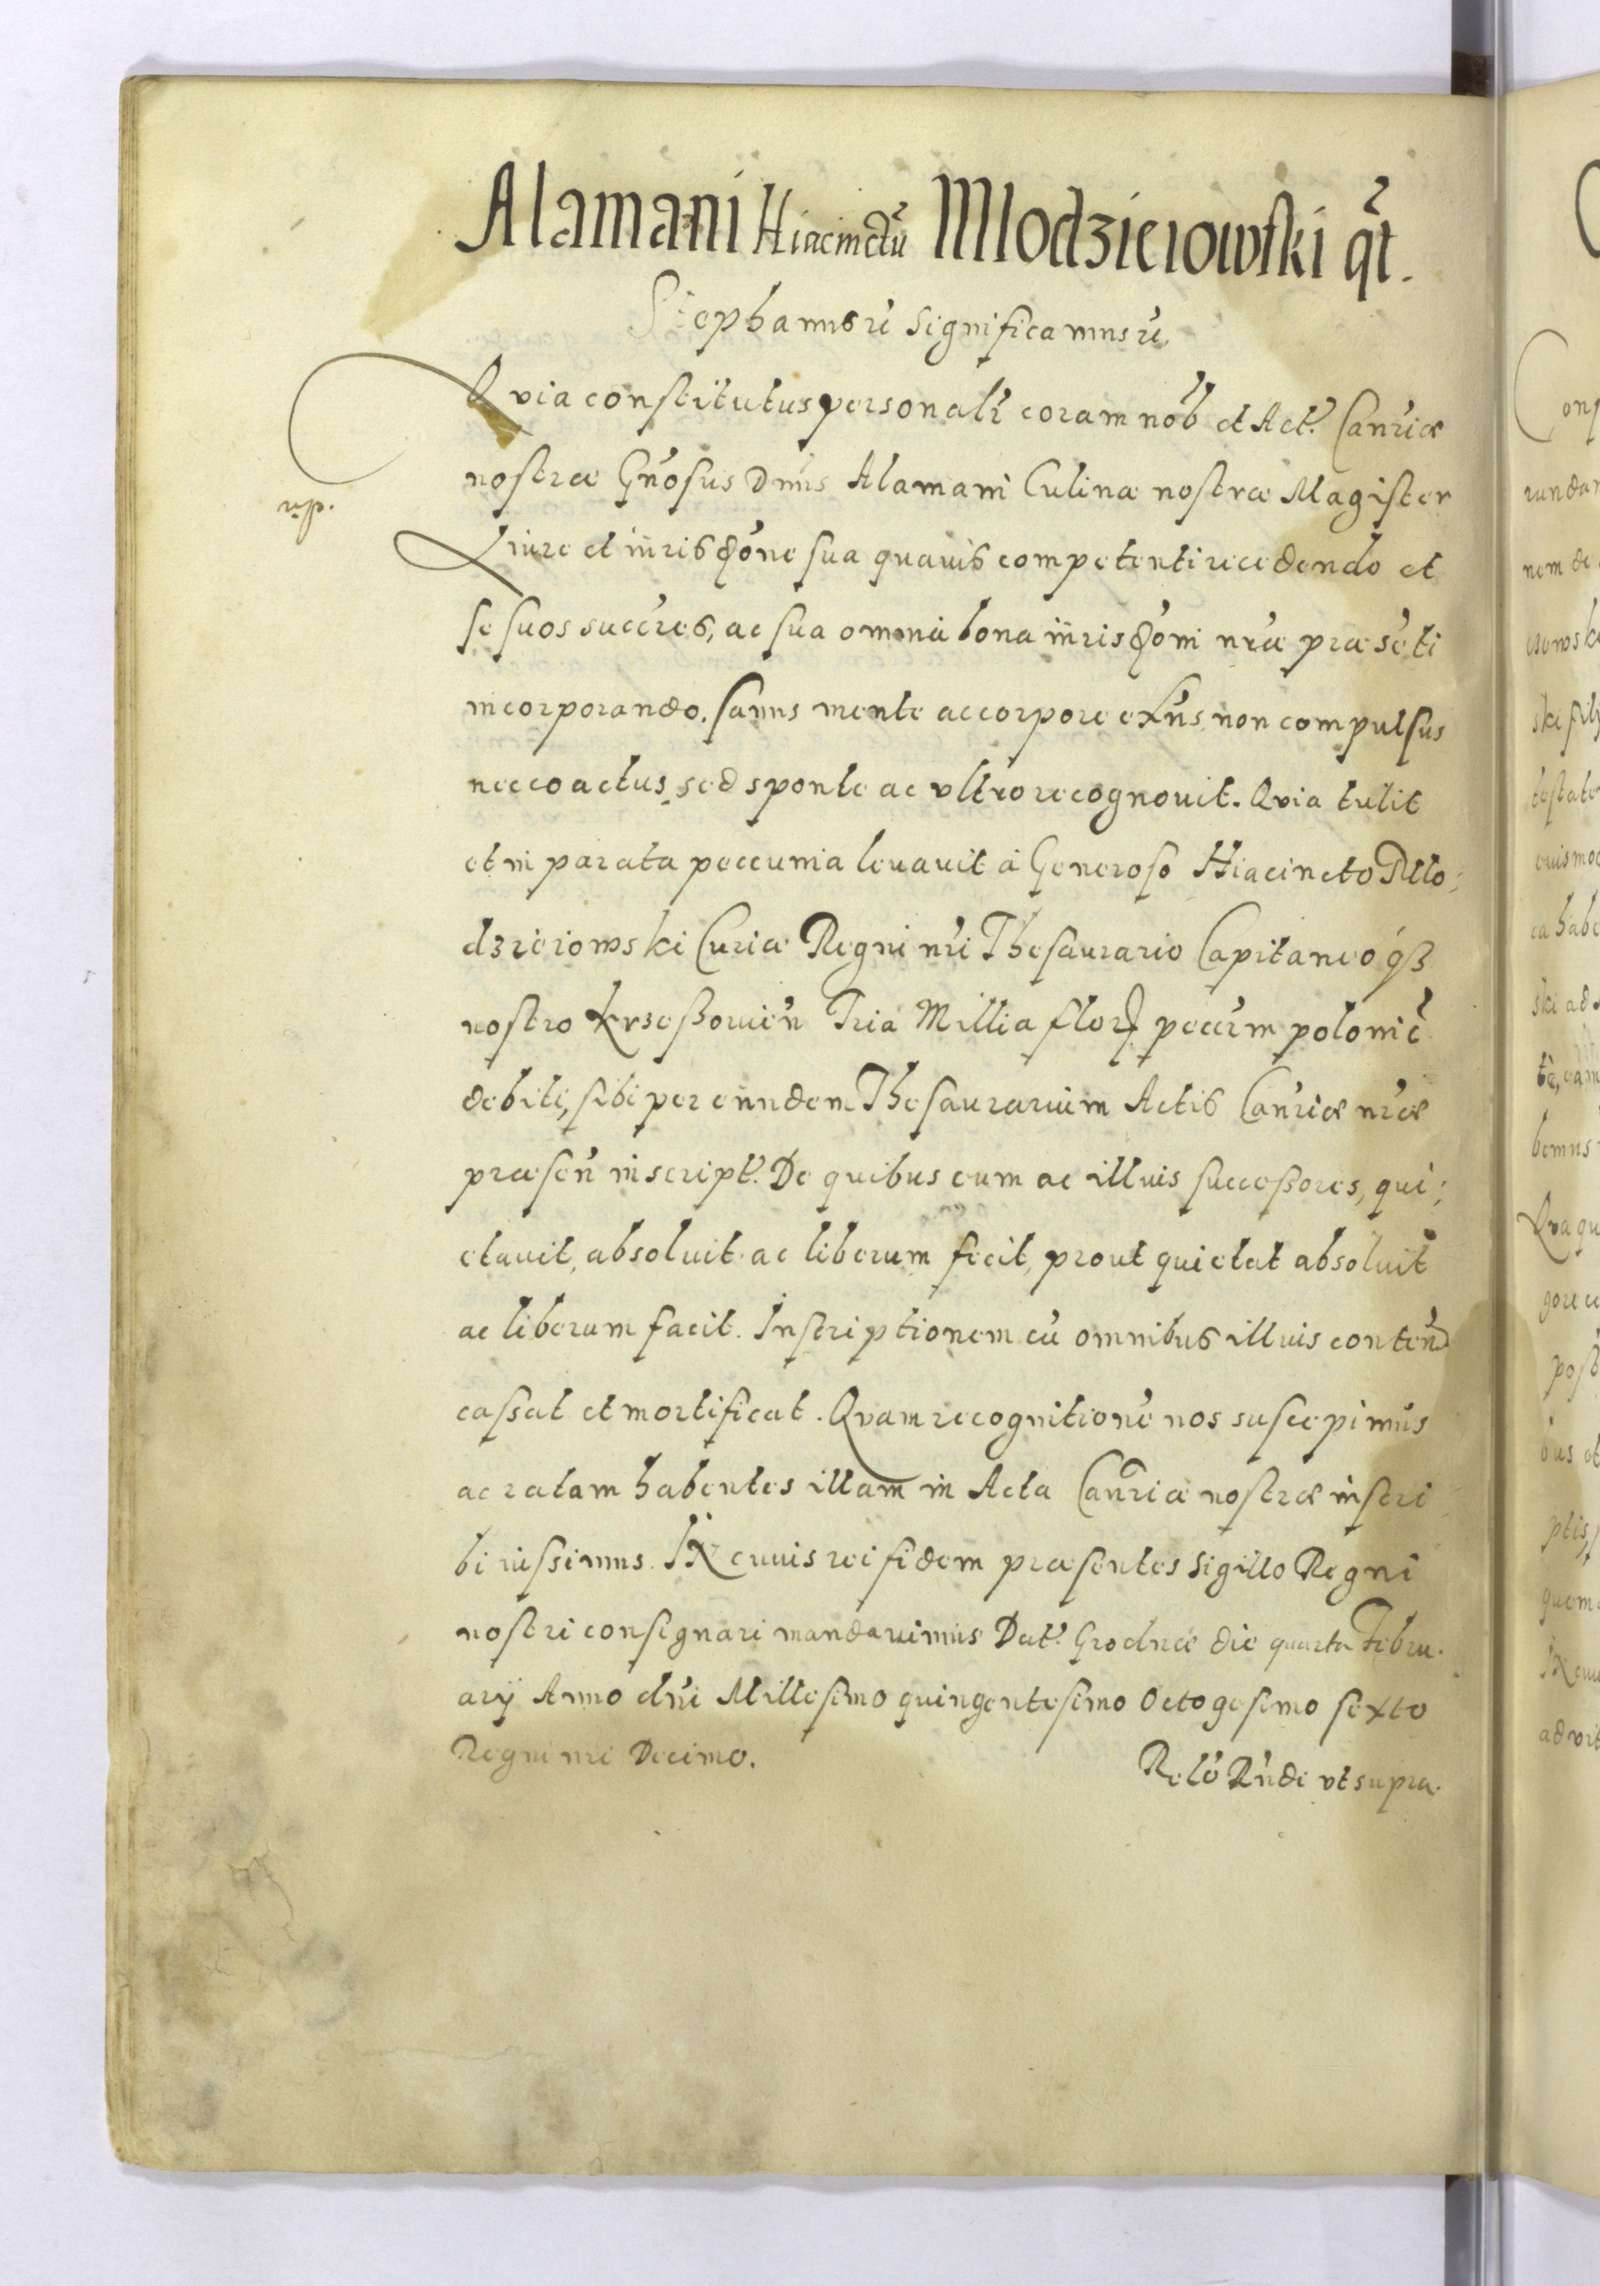 Alamani Hiacinctũ Mlodzieiowski qt.
Stephanus rẽ Significamus rẽ.
Qvia constitutus personalr̃ coram nob̃ et Act. Canr̃iæ
nostræ Gñosus Dnũs Alamani Culinæ nostræ Magister
A iure et iurisdõne sua quauis competenti recedendo et
se suos succr̃es, ac sua omnia bona iurisdõni nr̃æ præsẽti
incorporando. Sanus mente ac corpore exñs non compulsus
nec coactus sed sponte ac vltro recognovit. Qvia tulit
et in parata peccunia levavit à Generoso Hiacincto Mlo,
dzieiowski Curiæ Regni nr̃i Thesaurario Capitaneoq3
nostro Krzeßovieñ Tria Millia flor pecũm poloniĉ
debiti, sibi per eundem Thesaurarium Actis Canr̃iæ nr̃æ
præseñ inscript. De quibus eum ac illius succeßores, qui,
etavit, absoluit ac liberum fecit, prout quietat absoluit
ac liberum facit. Inscriptionem cũ omnibus illius conteñ
caßat et mortificat. Qvam recognitionẽ nos suscepimus
ac ratam habentes illam in Acta Canr̃iæ nostræ inscri
bi iussimus. IN cuius rei fidem præsentes Sigillo Regni
nostri consignari mandavimus Dat. Grodnæ die quarta Febru.
arij Anno dñi Millesimo quingentesimo Octogesimo sexto
Regni nri Decimo.
Relõ Rñdi vt supra.
Conf
rundam
nem de
ski ad
bemus
post
ptis,